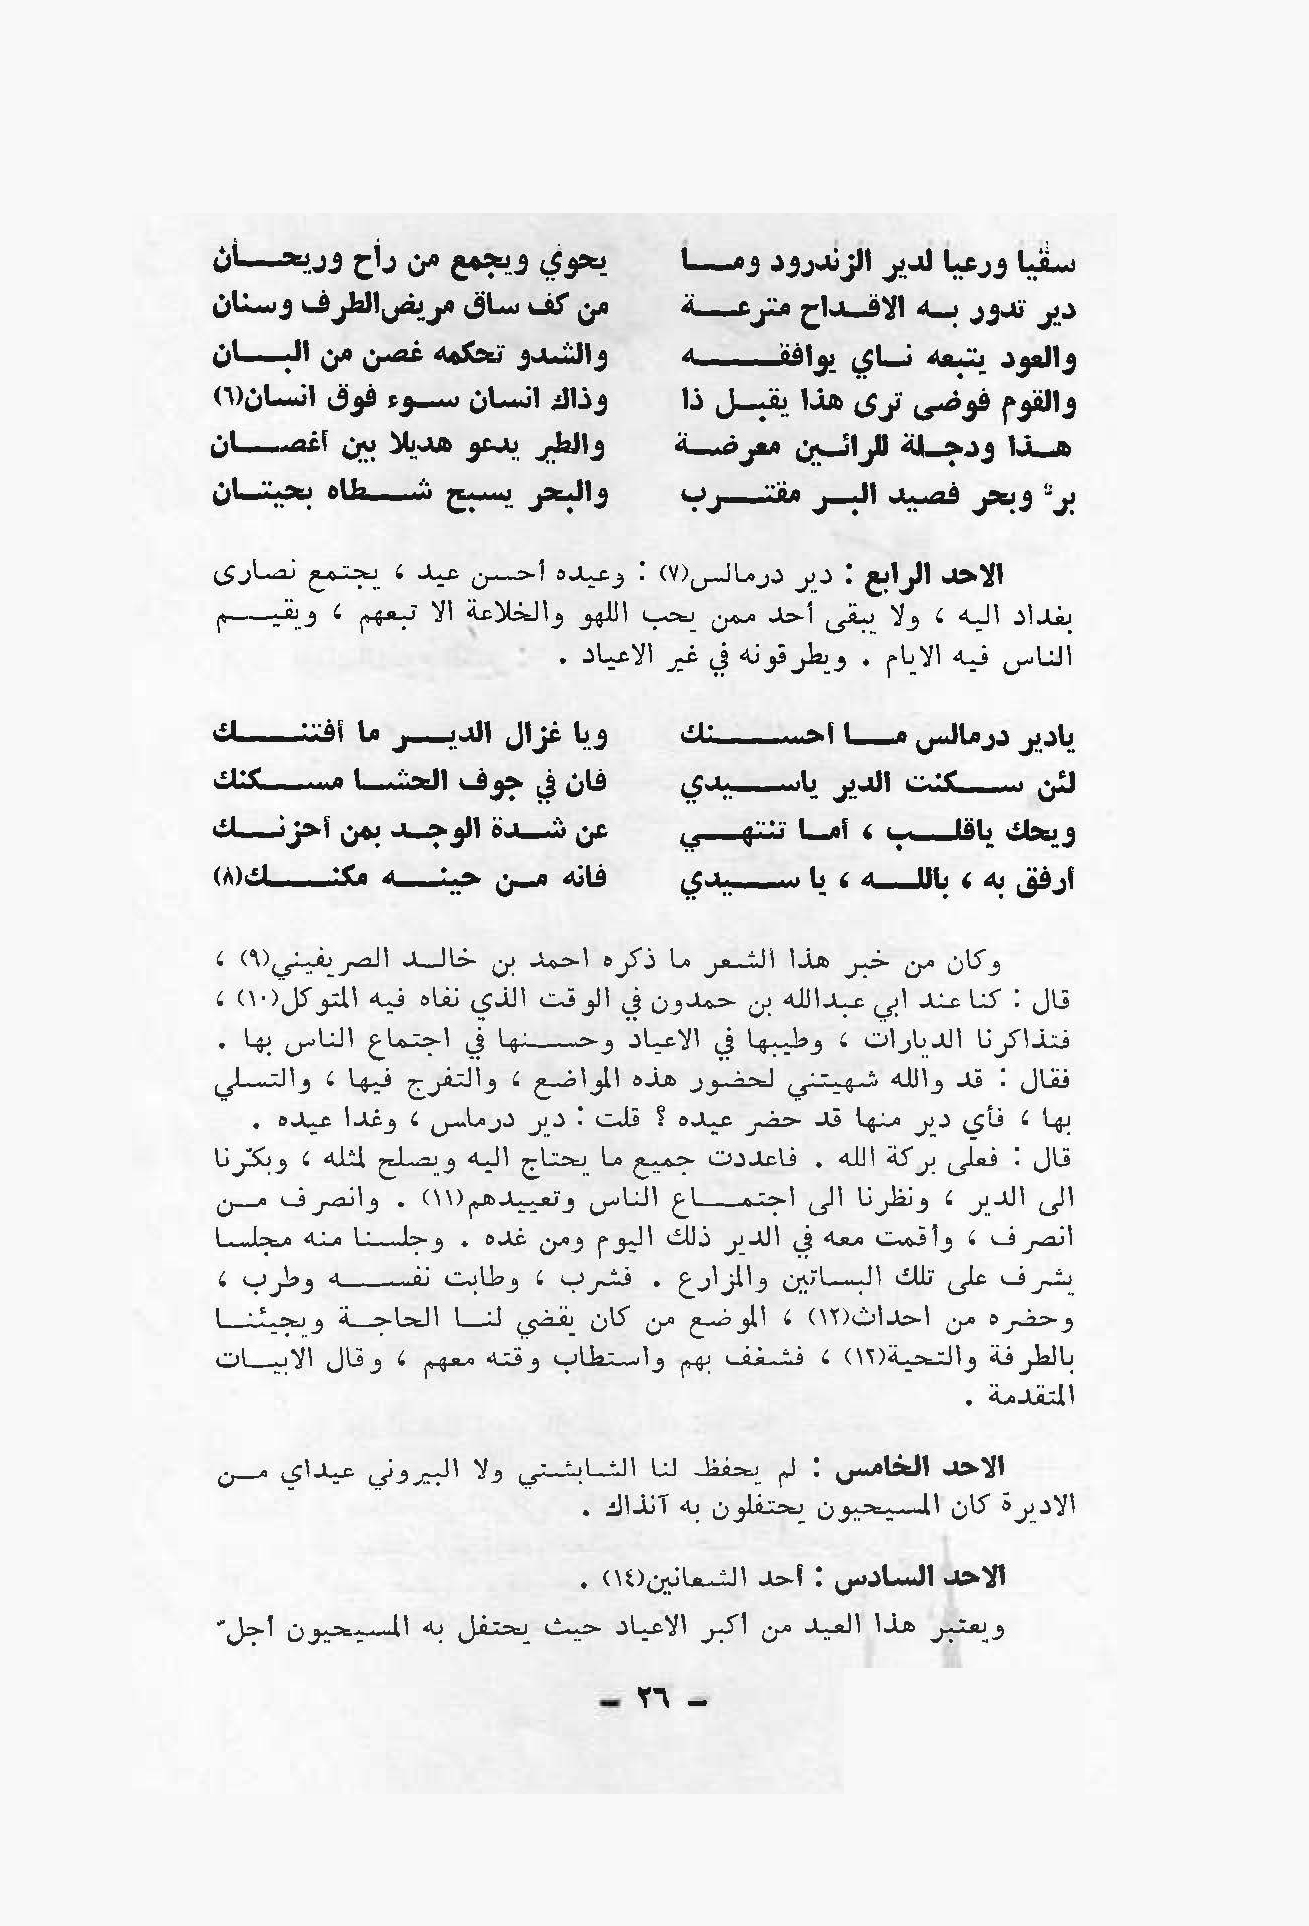 سقيا ورعيا لدير الزندرود وما يحوي ويجمع من راح وريحان
دير تدور به الاقداح مترعة من كف ساق مريض الطرف وسنان
والعود يتبعه ناي يوافقه والشدو تحكمه غصن من البان
والقوم فوضى ترى هذا يقبل ذا وذاك انسان سوء فوق انسان(٦)
هذا ودجلة للرائين معرضة والطير يدعو هديلا بين أغصان
بر وبحر فصيد البر مقترب والبحر يسبح شطاه بحيتان
الاحد الرابع : دير درمالس(٧) : وعيده أحسن عيد ، يجتمع نصارى
بغداد اليه ، ولا يبقى أحد ممن يحب اللهو والخلاعة الا تبعهم ، ويقيم
الناس فيه الايام . ويطرقونه في غير الاعياد .
يادير درمالس ما أحسنك ويا غزال الدير ما أفتنك
لئن سكنت الدير ياسيدي فان في جوف الحشا مسكنك
ويحك ياقلب ، أما تنتهي عن شدة الوجد بمن أحزنك
أرفق به ، بالله ، يا سيدي فانه من حينه مكنك(٨)
وكان من خبر هذا الشعر ما ذكره احمد بن خالد الصريفيني(٩) ،
قال : كنا عند ابي عبدالله بن حمدون في الوقت الذي نفاه فيه المتوكل(١٠) ،
فتذاكرنا الديارات ، وطيبها في الاعياد وحسنها في اجتماع الناس بها .
فقال : قد والله شهيتني لحضور هذه المواضع ، والتفرج فيها ، والتسلي
بها ، فأي دير منها قد حضر عيده ؟ قلت : دير درماس ، وغدا عيده .
قال : فعلى بركة الله . فاعددت جميع ما يحتاج اليه ويصلح لمثله ، وبكّرنا
الى الدير ، ونظرنا الى اجتماع الناس وتعييدهم(١١) . وانصرف من
انصرف ، وأقمت معه في الدير ذلك اليوم ومن غده . وجلسنا منه مجلسا
يشرف على تلك البساتين والمزارع . فشرب ، وطابت نفسه وطرب ،
وحضره من احداث(١٢) ، الموضع من كان يقضي لنا الحاجة ويجيئنا
بالطرفة والتحية(١٢) ، فشغف بهم واستطاب وقته معهم ، وقال الابيات
المتقدمة .
الاحد الخامس : لم يحفظ لنا الشابشتي ولا البيروني عيداي من
الاديرة كان المسيحيون يحتفلون به آنذاك .
الاحد السادس : أحد الشعانين(١٤) .
ويعتبر هذا العيد من أكبر الاعياد حيث يحتفل به المسيحيون أجلّ
- ٢٦ -